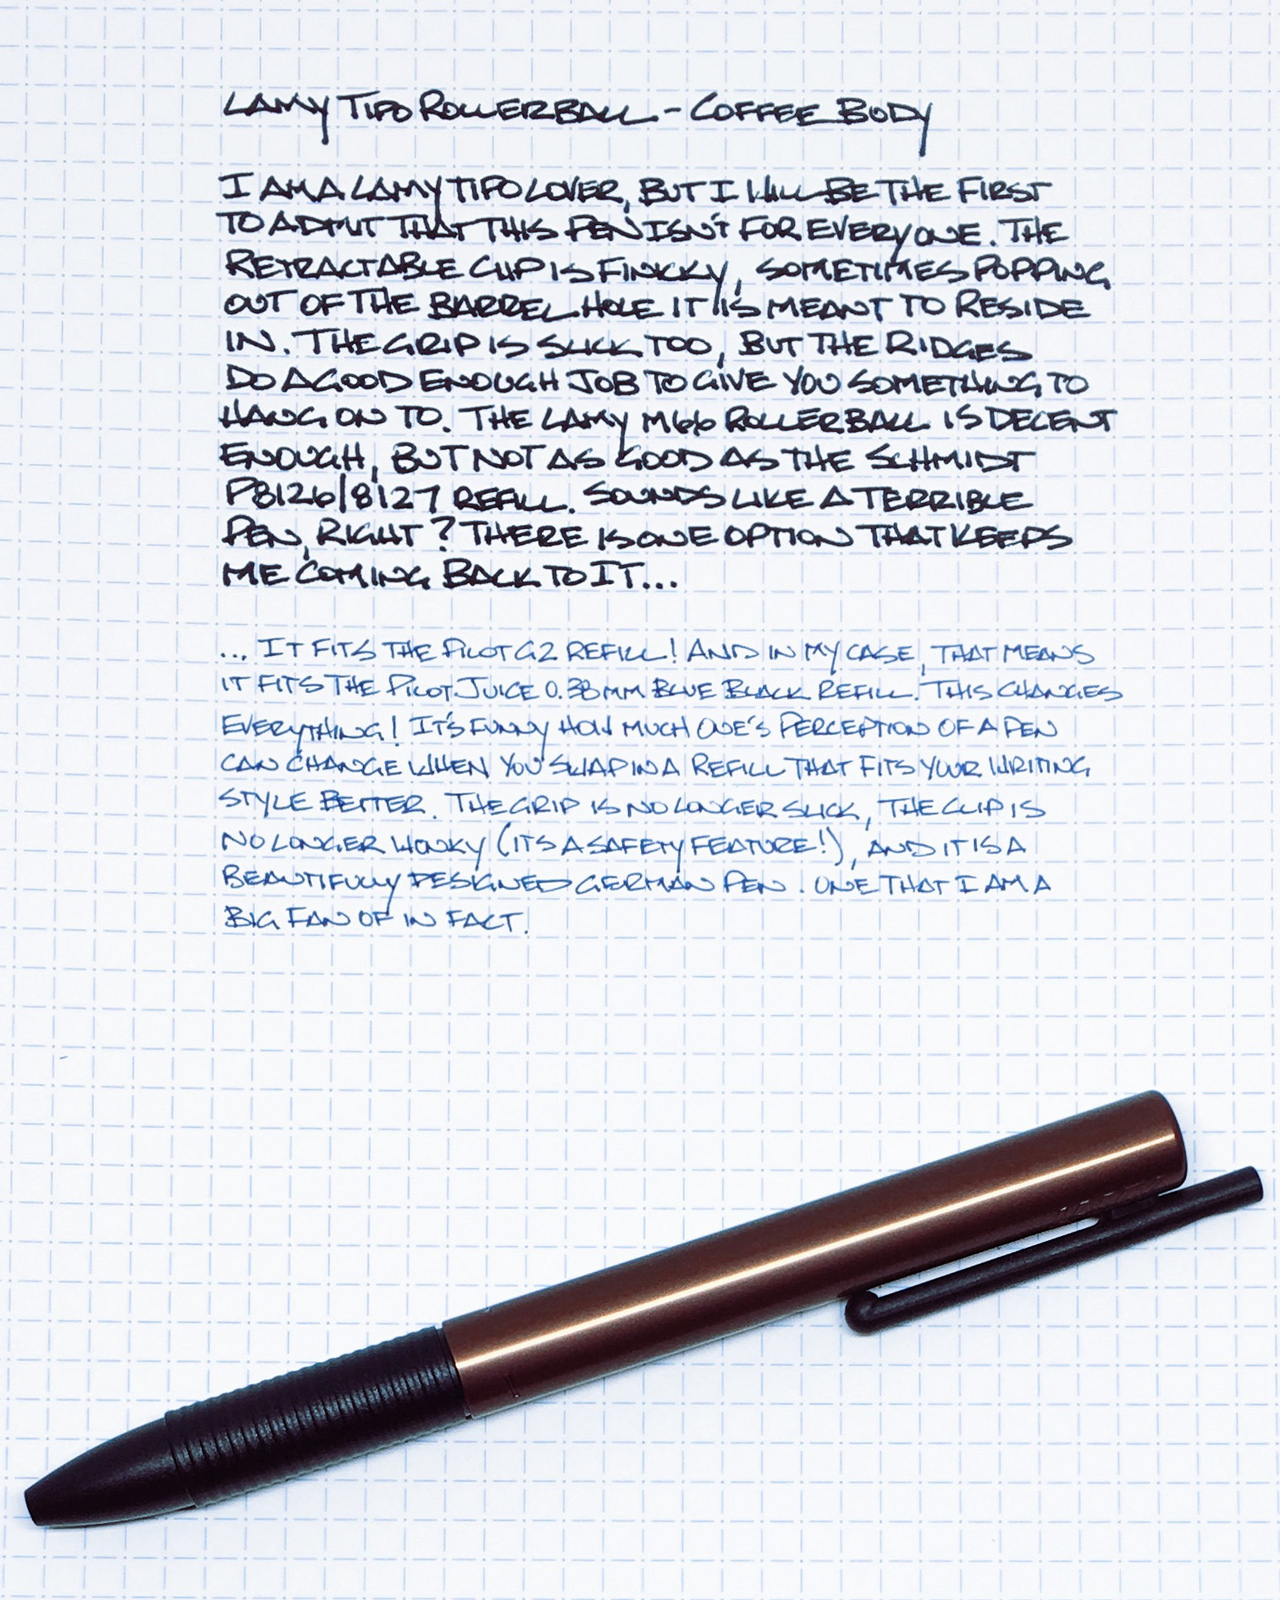 LAMY TIPO ROLLERBALL - COFFEE BODY
I AM A LAMY TIPO LOVER, BUT I WILL BE THE FIRST
TO ADMIT THAT THIS PEN ISN'T FOR EVERYONE. THE
RETRACTABLE CLIP IS FINICKY, SOMETIMES POPPING
OUT OF THE BARREL HOLE IT IS MEANT TO RESIDE
IN. THE GRIP IS SLICK TOO, BUT THE RIDGES
DO A GOOD ENOUGH JOB TO GIVE YOU SOMETHING TO
HANG ON TO. THE LAMY M66 ROLLERBALL IS DECENT
ENOUGH, BUT NOT AS GOOD AS THE SCHMIDT
P8126/8127 REFILL. SOUNDS LIKE A TERRIBLE
PEN, RIGHT? THERE IS ONE OPTION THAT KEEPS
ME COMING BACK TO IT...
... IT FITS THE PILOT G2 REFILL! AND IN MY CASE, THAT MEANS
IT FITS THE PILOT JUICE 0.38MM BLUE BLACK REFILL. THIS CHANGES
EVERYTHING! IT'S FUNNY HOW MUCH ONE'S PERCEPTION OF A PEN
CAN CHANGE WHEN YOU SWAP IN A REFILL THAT FITS YOUR WRITING
STYLE BETTER. THE GRIP IS NO LONGER SLICK, THE CLIP IS
NO LONGER WONKY (IT'S A SAFETY FEATURE!), AND IT IS A
BEAUTIFULLY DESIGNED GERMAN PEN. ONE THAT I AM A
BIG FAN OF IN FACT.